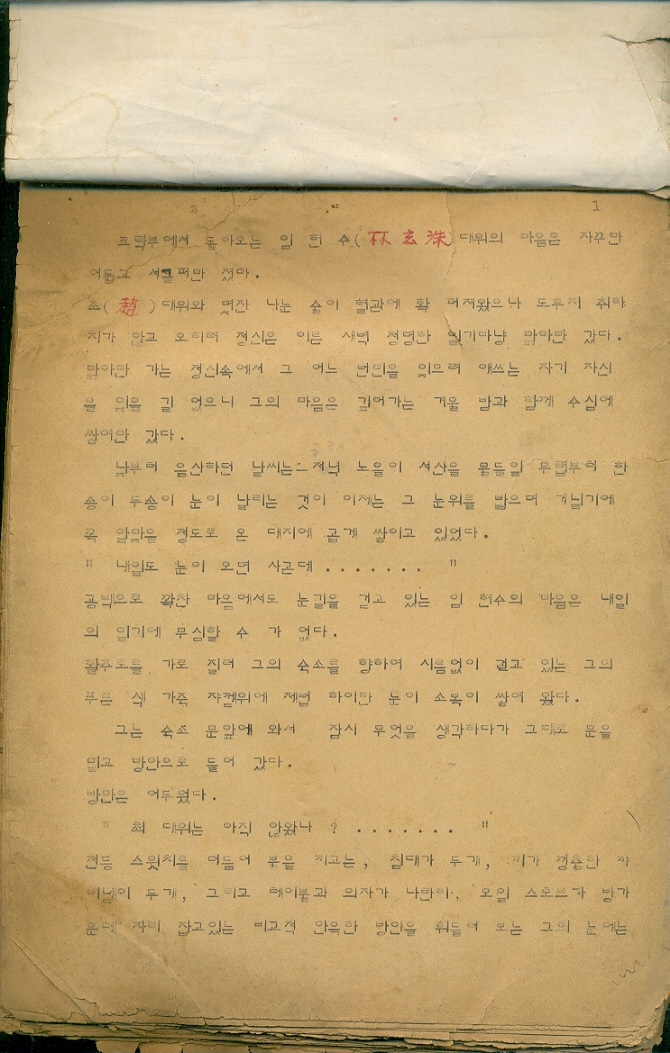 1
크럽부에서 돌아오는 임 현 수(林玄洙)대위의 마음은 자꾸만
어둡고 서글퍼만 졌다.
조(趙)대위와 몇잔 나눈 술이 혈관에 확 퍼져왔으나 도무지 취하
지가 않고 오히려 정신은 이른 새벽 청명한 일기마냥 맑아만 갔다.
맑아만 가는 정신속에서 그 어느 번민을 잊으려 애쓰는 자기 자신
을 잊을 길 없으니 그의 마음은 깊어가는 겨울 밤과 함께 수심에
쌓여만 갔다.
낮부터 음산하던 날씨는 저녁 노을이 서산을 물들일 무렵부터 한
송이 두송이 눈이 날리는 것이 이제는 그 눈위를 밟으며 거닐기에
꼭 알맞을 정도로 온 대지에 곱게 쌓이고 있었다.
" 내일도 눈이 오면 사곤데 . . . . . . . "
공백으로 꽉찬 마음에서도 눈길을 걷고 있는 임 현수의 마음은 내일
의 일기에 무심할 수 가 없다.
활주로를 가로 질러 그의 숙소를 향하여 시름없이 걷고 있는 그의
푸른 색 가죽 쟈켙위에 제법 하이얀 눈이 소복이 쌓여 왔다.
그는 숙소 문앞에 와서 잠시 무엇을 생각하다가 그대로 문을
밀고 방안으로 들어 갔다.
방안은 어두웠다.
" 최 대위는 아직 안왔나 ? . . . . . . . "
전등 스윗치를 더듬어 불을 키고는, 침대가 두개, 키가 껑충한 캬
비넽이 두개, 그리고 테이블과 의자가 나란히, 오일 스토브가 방가
운데 자리 잡고있는 비교적 안윽한 방안을 휘둘러 보는 그의 눈에는